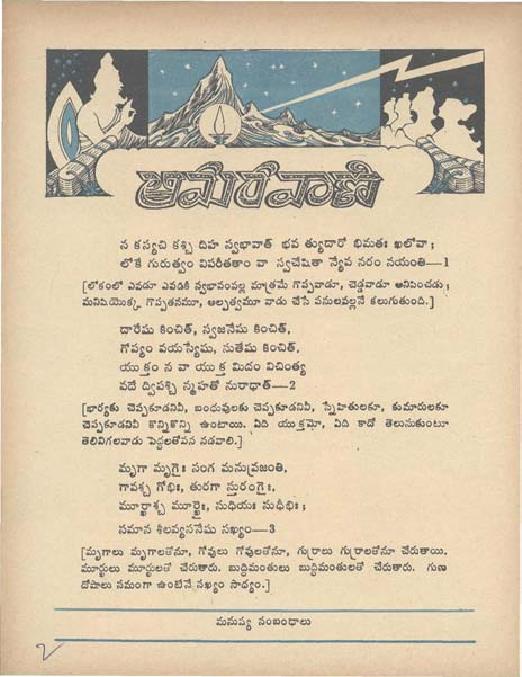 అమరవాణి
న కస్యచి కశ్చి దిహ స్వభావాత్ భవ త్యుదారో భిమతః ఖలోవా ;
లోకే గురుత్వం విపరీతతాం వా స్వచేష్టితా న్యేవ నరం నయంతి—1
[లోకంలో ఎవడూ ఎవడికీ స్వభావంవల్ల మాత్రమే గొప్పవాడూ, చెడ్డవాడూ అనిపించడు ;
మనిషియొక్క గొప్పతనమూ, అల్పత్వమూ వాడు చేసే పనులవల్లనే కలుగుతుంది.]
దారేషు కించిత్, స్వజనేషు కించిత్,
గోప్యం వయస్యేషు, సుతేషు కించిత్,
యుక్తం న వా యుక్త మిదం విచింత్య
వదే ద్విపశ్చి న్మహతో నురాధాత్—2
[భార్యకు చెప్పకూడనివీ, బంధువులకు చెప్పకూడనివీ, స్నేహితులకూ, కుమారులకూ
చెప్పకూడనివీ కొన్నికొన్ని ఉంటాయి. ఏది యుక్తమో, ఏది కాదో తెలుసుకుంటూ
తెలివిగలవాడు పెద్దలతోపన నడవాలి.]
మృగా మృగైః సంగ మనువ్రజంతి,
గావశ్చ గోభిః, తురగా స్తురంగైః,
మూర్ఖాశ్చ మూర్ఖైః, సుధియః సుధీభిః ;
సమాన శీలవ్యసనేషు సఖ్యం—3
[మృగాలు మృగాలతోనూ, గోవులు గోవులతోనూ, గుర్రాలు గుర్రాలతోనూ చేరుతాయి.
మూర్ఖులు మూర్ఖులతో చేరుతారు. బుద్ధిమంతులు బుద్ధిమంతులతో చేరుతారు. గుణ
దోషాలు సమంగా ఉంటేనే సఖ్యం సాధ్యం.]
మనుష్య సంబంధాలు
2